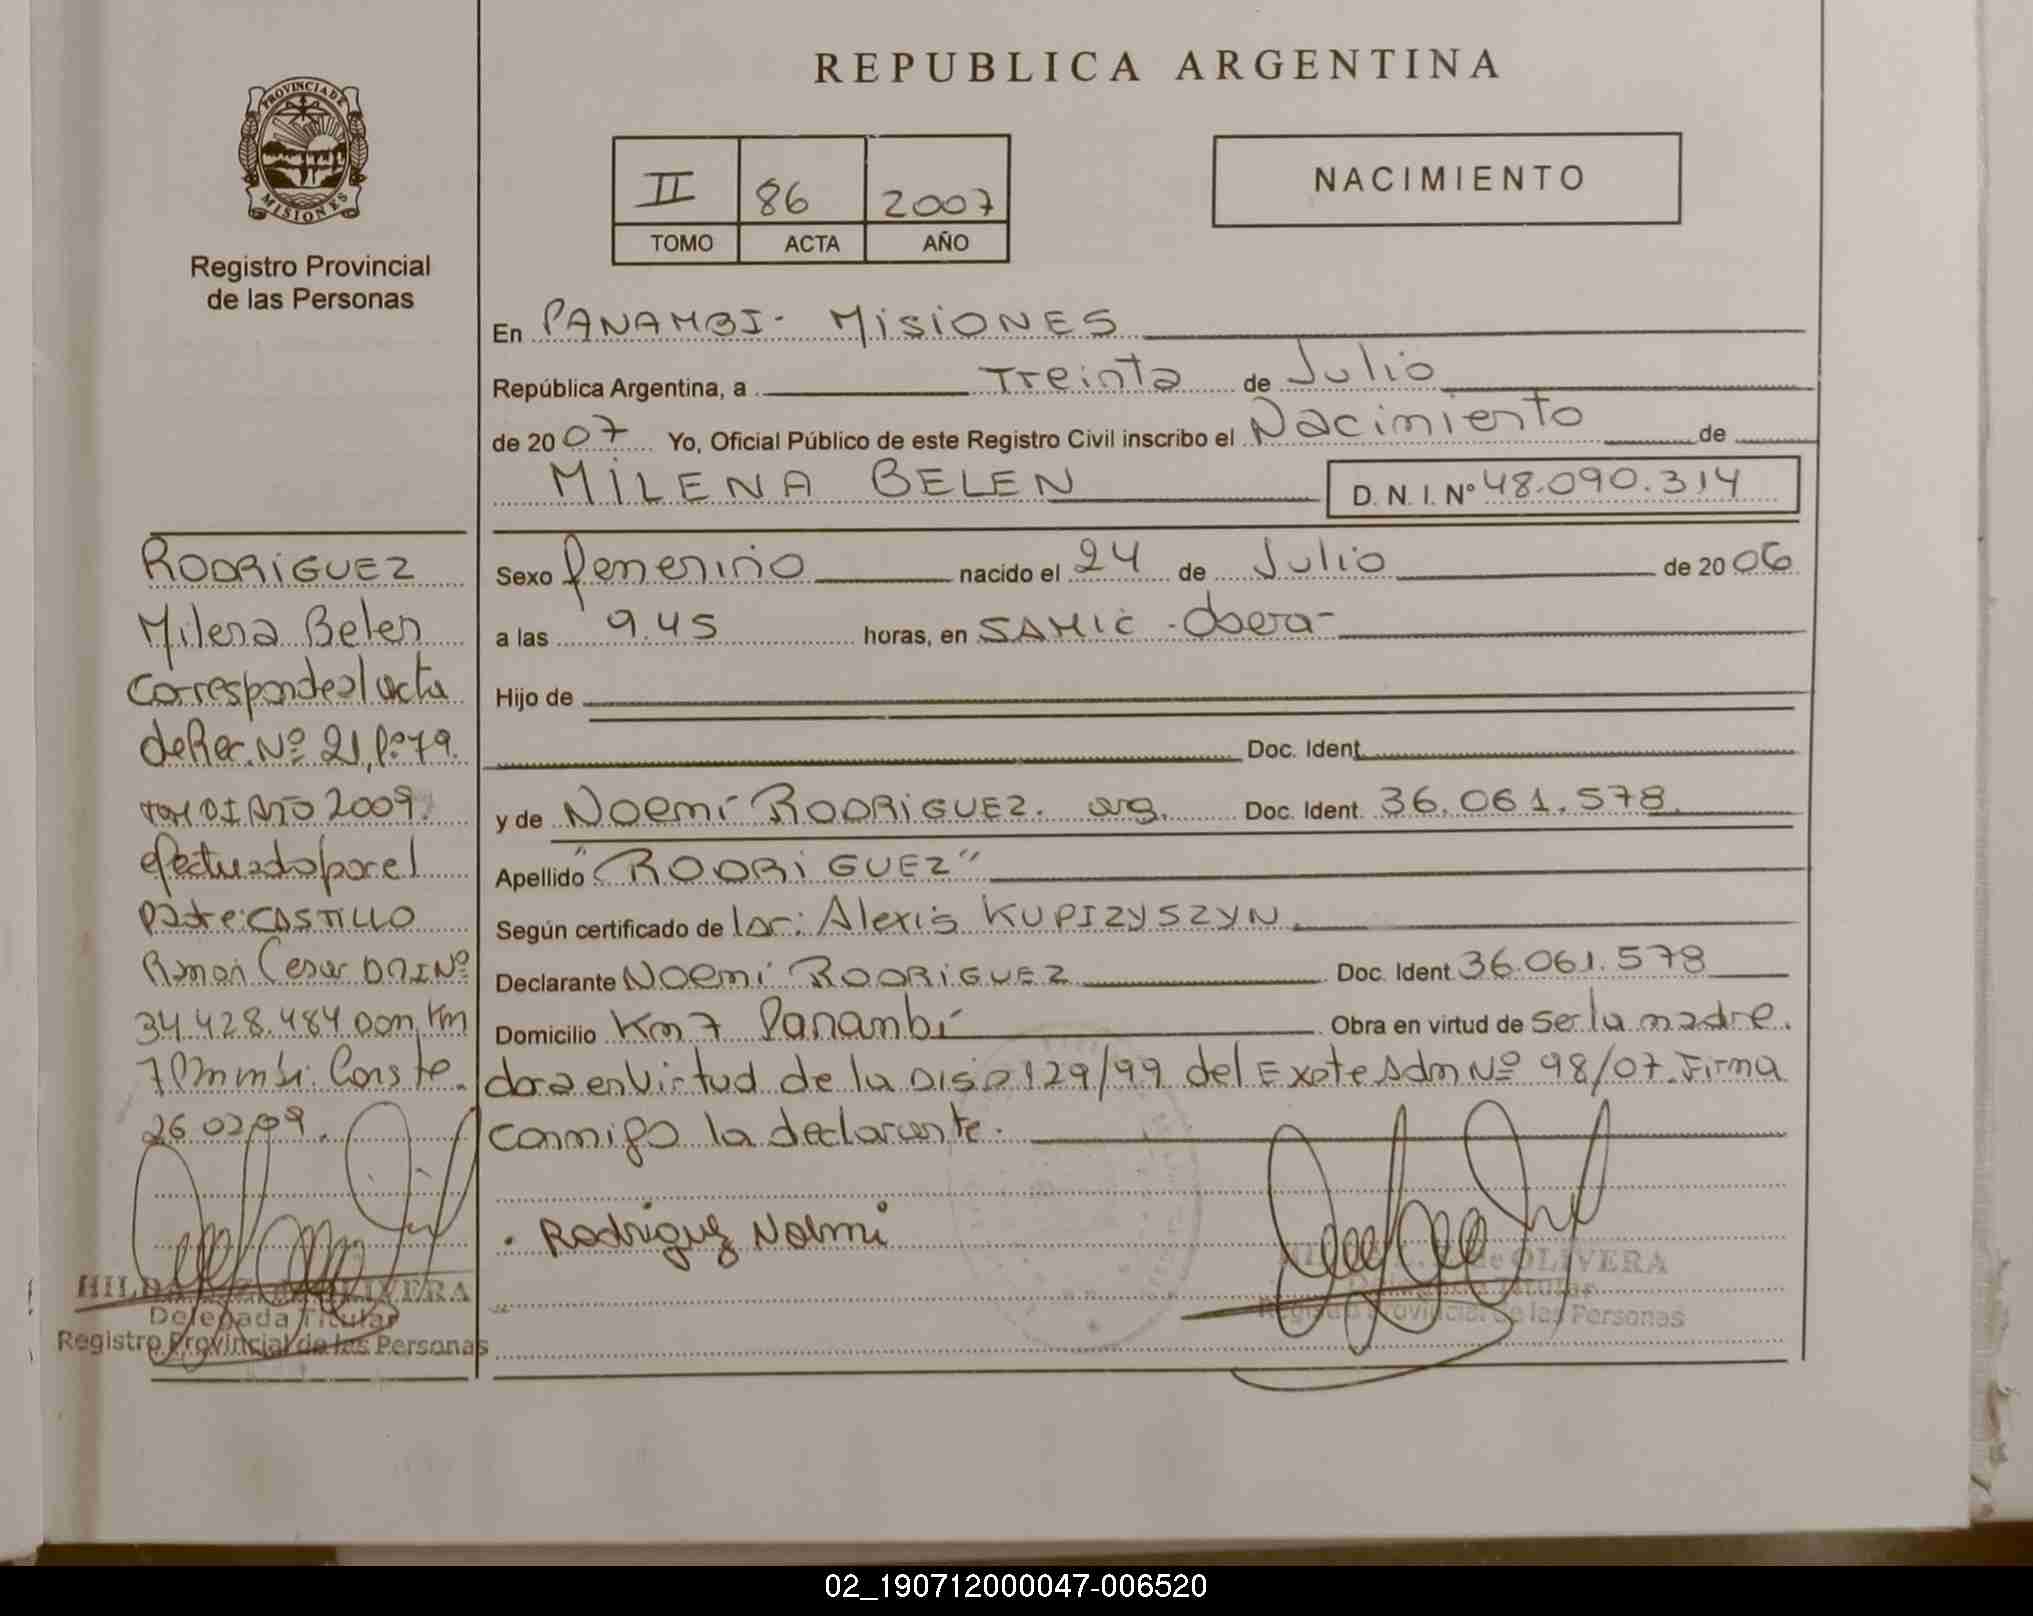 REPUBLICA ARGENTINA
PROVINCIA DE
MISIONES
Registro Provincial
de las Personas
II 86 2007
TOMO ACTA AÑO
NACIMIENTO
En PANAMBI - MISIONES
República Argentina, a Treinta de Julio
de 2007 Yo, Oficial Público de este Registro Civil inscribo el Nacimiento de
MILENA BELEN D. N. I. Nº 48.090.314
Sexo femenino nacido el 24 de Julio de 2006
a las 9.45 horas, en SAMIC - Obera -
Hijo de
Doc. Ident.
y de Noemí RODRIGUEZ. arg. Doc. Ident. 36.061.578.
Apellido "RODRIGUEZ"
Según certificado de Alexis KUPIZYSZYN.
Declarante Noemí RODRIGUEZ Doc. Ident. 36.061.578
Domicilio Km 7 Panambí Obra en virtud de ser la madre.
en virtud de la Disp 129/99 del Expte Adm Nº 98/07. Firma
conmigo la declarante.
Rodriguez Noemi
de OLIVERA
Delegada Titular
Registro Provincial de las Personas
RODRIGUEZ
Milena Belen
Corresponde al acta
de Rec. Nº 21, Fº 79.
TOM I AÑO 2009
efectuado por el
padre: CASTILLO
Ramon Cesar DNI Nº
34.428.484 Dom. Km
7 Panambi. Conste.
26.02.09.
HILDA OLIVERA
Delegada Titular
Registro Provincial de las Personas
02_190712000047-006520